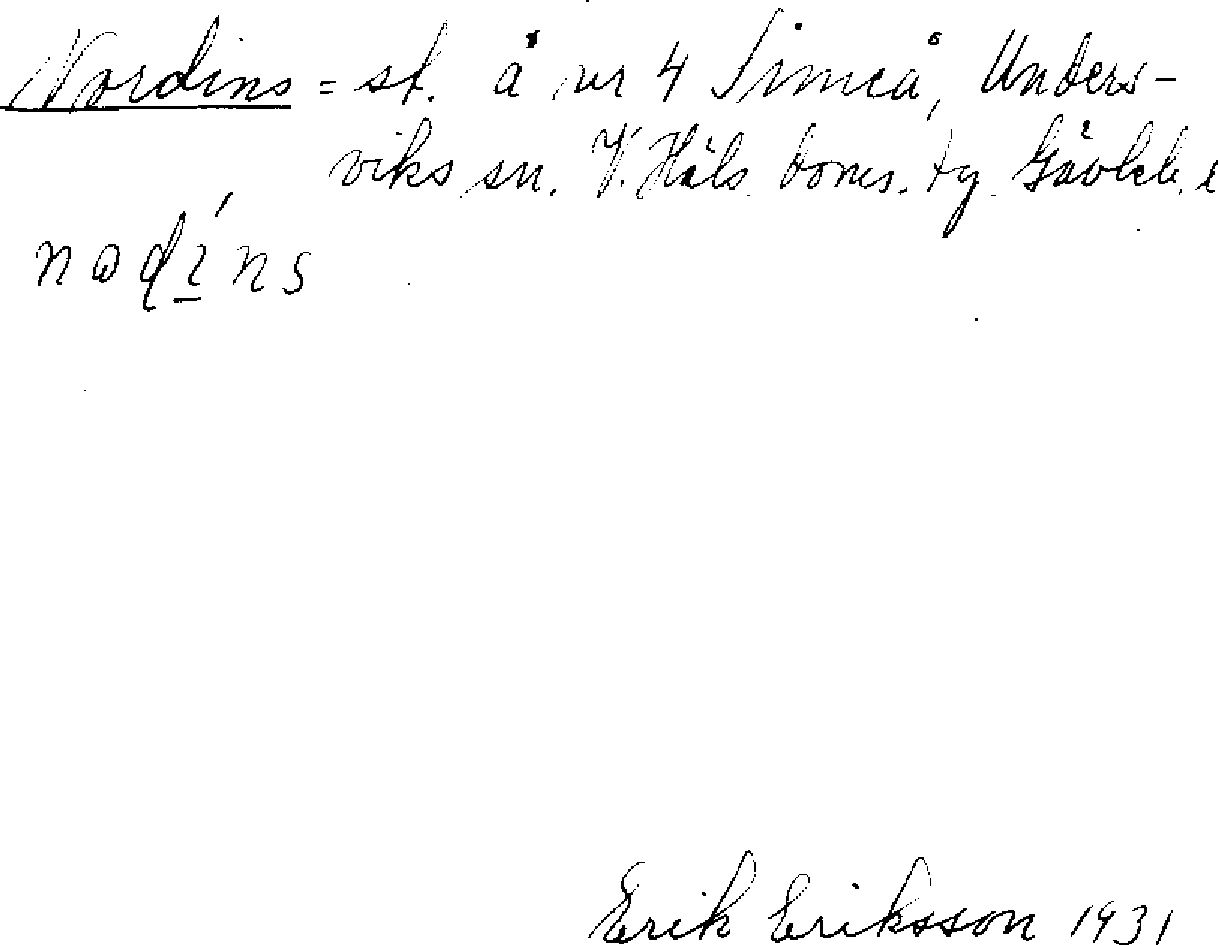 Nordins = st. å nr 4 Simeå, Unders-
viks sn. V. Häls. doms. tg. Gävleb. l
nɷɖí̲ns
Erik Eriksson 1931